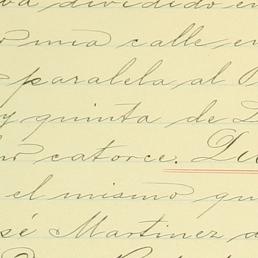 dividido en
una calle en
paralela al
y quinta de
catorce.
el mismo que
sé Martinez